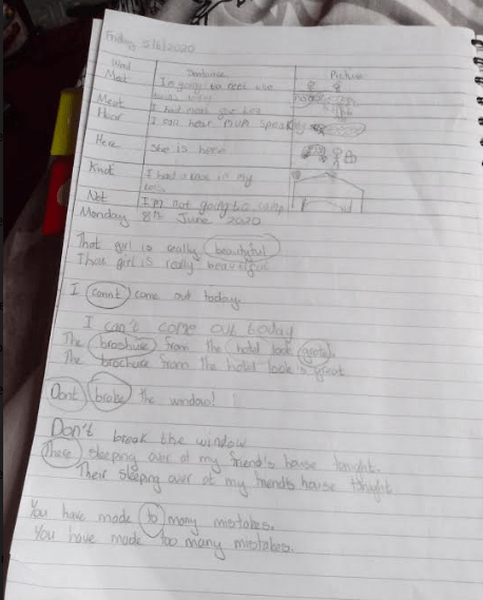 Friday 5/6/2020
Word Sentence Picture
Meet I'm going to meet
Meat I had meat for
Hear I can hear speaking
Here She is here
Knot I had a in my
Not I'm not going to camp
Monday 8th June 2020
That girl is really beautiful
That girl is really beautiful
I cannt come out today.
I can't come out today
The from the hotel look
The brochure from the hotel look's great
Dont brake the window!
Don't break the window
There sleeping over at my friend's house tonight.
Their sleeping over at my friend's house tonight
You have made to many mistakes.
You have made too many mistakes.